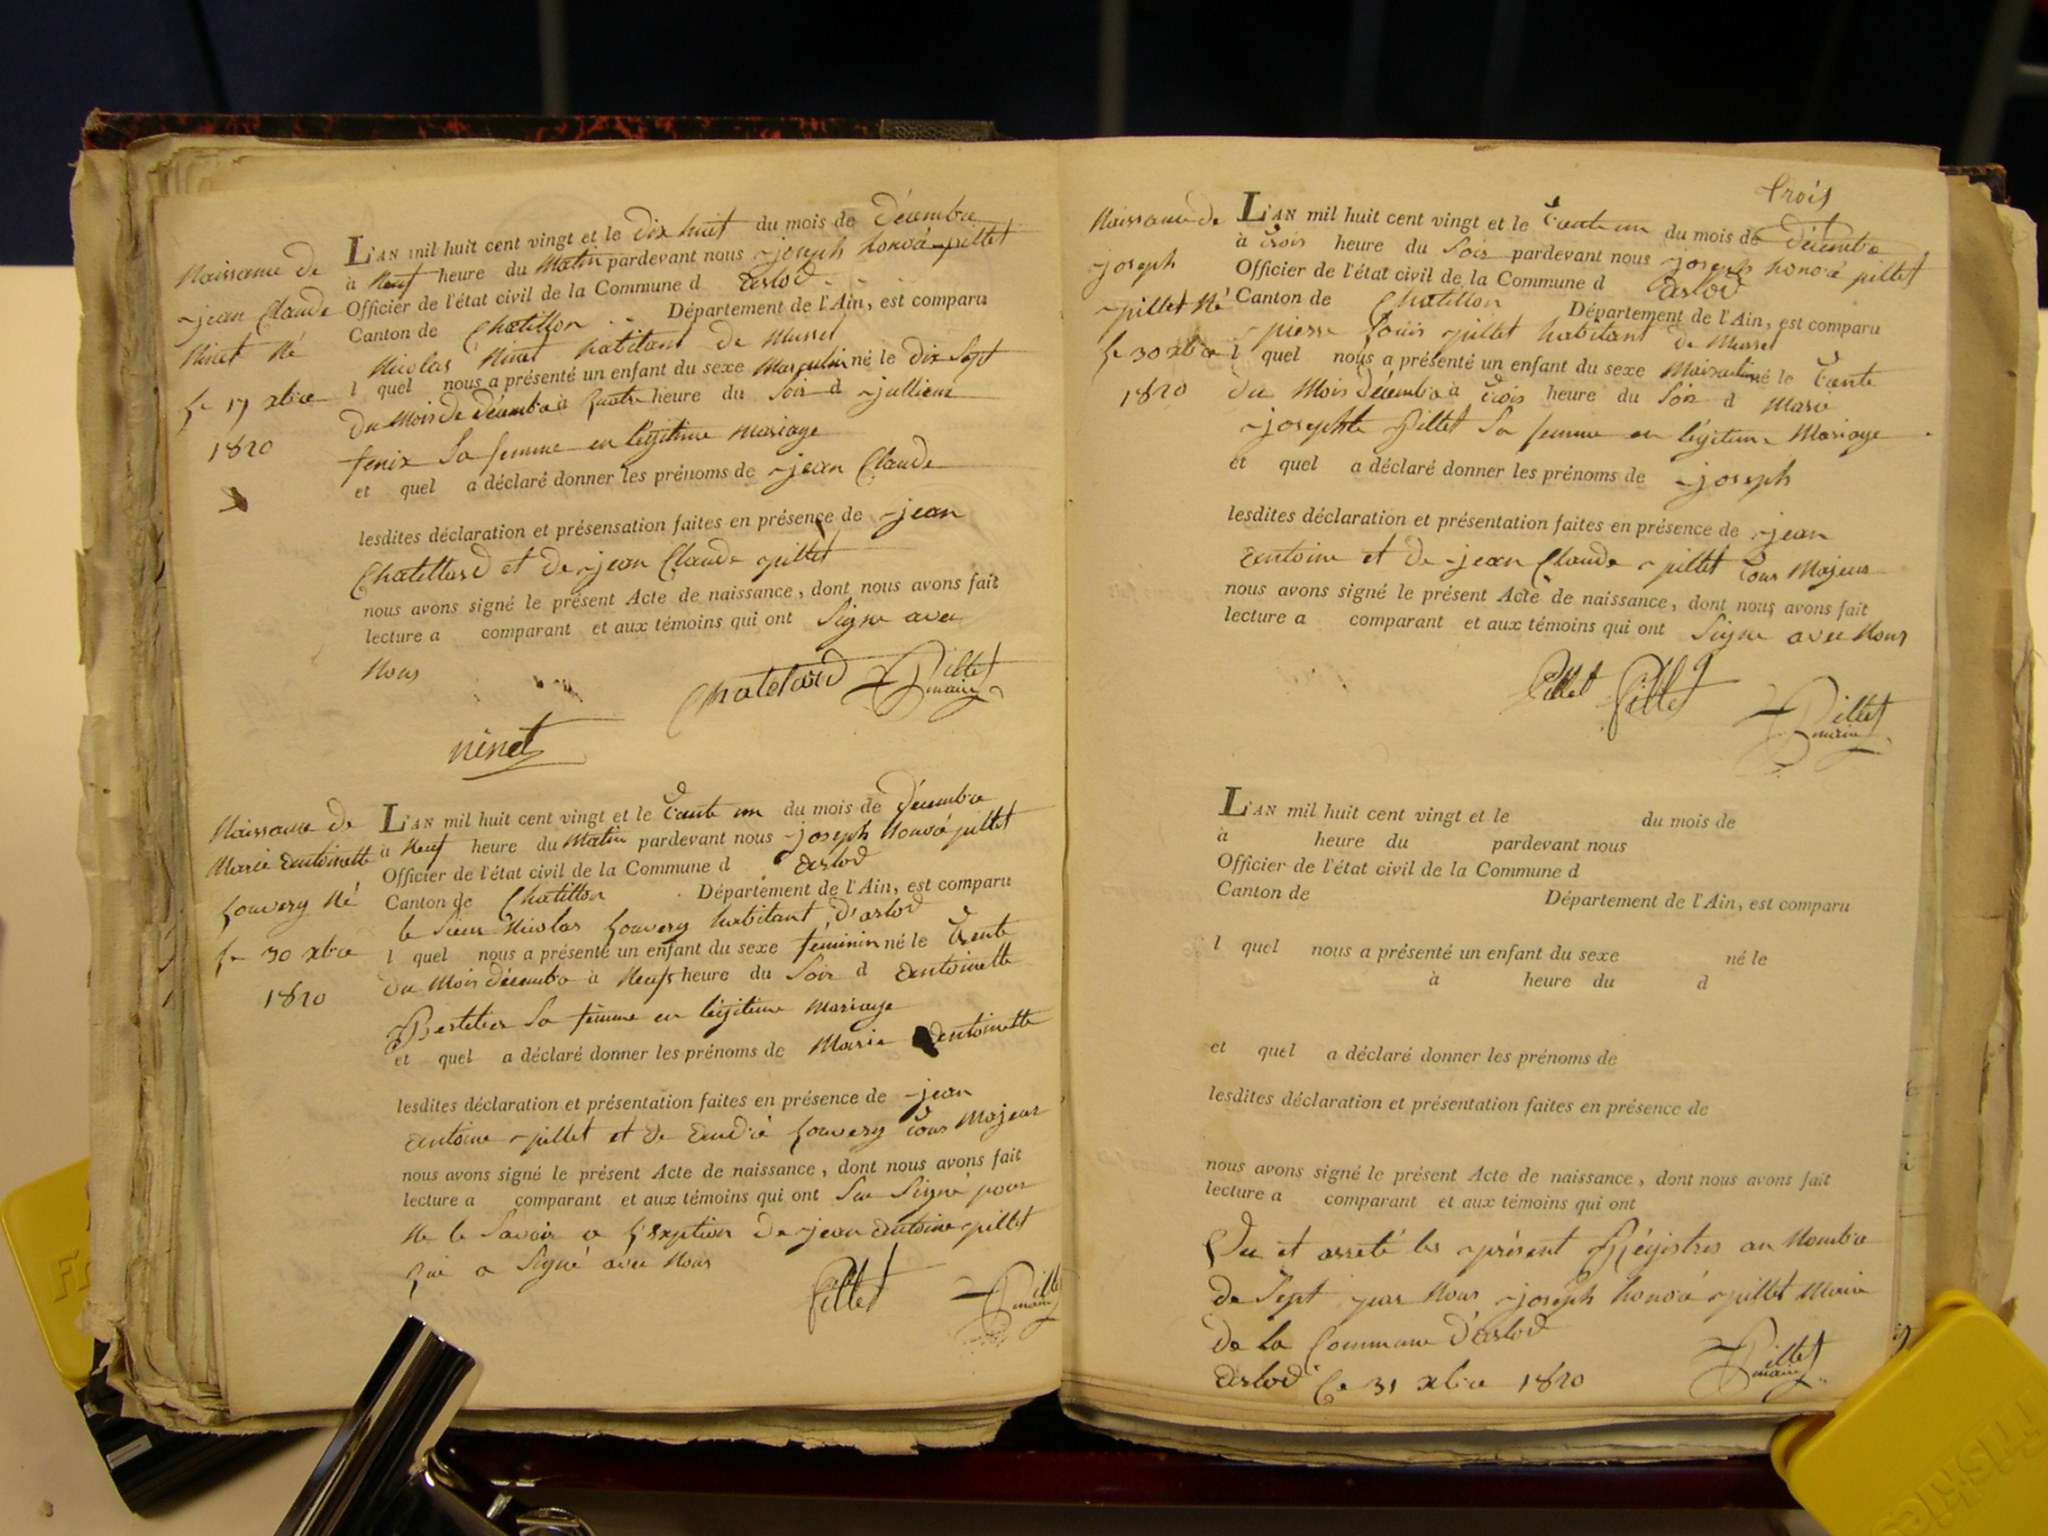 Naissance de
jean Claude
Ninet Né
Le 17 xbre
1820
L'AN mil huit cent vingt et le dix huit du mois de décembre
à Neuf heure du Matin pardevant nous joseph honoré pillet
Officier de l'état civil de la Commune d arlod
Canton de Chatillon Département de l'Ain, est comparu
Nicolas Ninet habitant de Mussel
l quel nous a présenté un enfant du sexe Masculin né le dix Sept
du Mois de décembre à quatre heure du Soir d jullienne
fenix Sa femme en légitime mariage
et quel a déclaré donner les prénoms de jean Claude
lesdites déclaration et présensation faites en présence de jean
Chatellard et de jean Claude pillet
nous avons signé le présent Acte de naissance, dont nous avons fait
lecture a comparant et aux témoins qui ont Signe avec
Nous
Chatelard Pillet
maire
ninet
Naissance de
Marie antoinette
Louvery Né
Le 30 xbre
1820
L'AN mil huit cent vingt et le trente un du mois de décembre
à Neuf heure du Matin pardevant nous joseph honoré pillet
Officier de l'état civil de la Commune d arlod
Canton de Chatillon Département de l'Ain, est comparu
le Sieur Nicolas Louvery habitant d'arlod
l quel nous a présenté un enfant du sexe féminin né le trente
du Mois décembre à Neufs heure du Soir d antoinette
Sa femme en légitime mariage
et quel a déclaré donner les prénoms de Marie antoinette
lesdites déclaration et présentation faites en présence de jean
antoine pillet et de andré Louvery tous Majeur
nous avons signé le présent Acte de naissance, dont nous avons fait
lecture a comparant et aux témoins qui ont Signé pour
Ne le Savoir a L'exption de jean antoine pillet
qui a Signé avec Nous
Pillet Pillet
maire
trois
Naissance de
joseph
pillet Né
Le 30 xbre
1820
L'AN mil huit cent vingt et le trente un du mois de décembre
à trois heure du Soir pardevant nous joseph honoré pillet
Officier de l'état civil de la Commune d arlod
Canton de Chatillon Département de l'Ain, est comparu
pierre Louis pillet habitant de Mussel
l quel nous a présenté un enfant du sexe Masculin né le trente
du Mois décembre à trois heure du Soir d Marie
josephte Pillet Sa femme en légitime Mariage
et quel a déclaré donner les prénoms de joseph
lesdites déclaration et présentation faites en présence de jean
antoine et de jean Claude pillet tous Majeur
nous avons signé le présent Acte de naissance, dont nous avons fait
lecture a comparant et aux témoins qui ont Signe avec Nous
Pillet Pillet Pillet
maire
L'AN mil huit cent vingt et le du mois de
à heure du pardevant nous
Officier de l'état civil de la Commune d
Canton de Département de l'Ain, est comparu
l quel nous a présenté un enfant du sexe né le
à heure du d
et quel a déclaré donner les prénoms de
lesdites déclaration et présentation faites en présence de
nous avons signé le présent Acte de naissance, dont nous avons fait
lecture a comparant et aux témoins qui ont
Vu et arreté les présent Régistres au Nombre
de Sept par Nous joseph honoré pillet Maire
de la Commune d'arlod
arlod Le 31 xbre 1820
Pillet
maire
Friskies